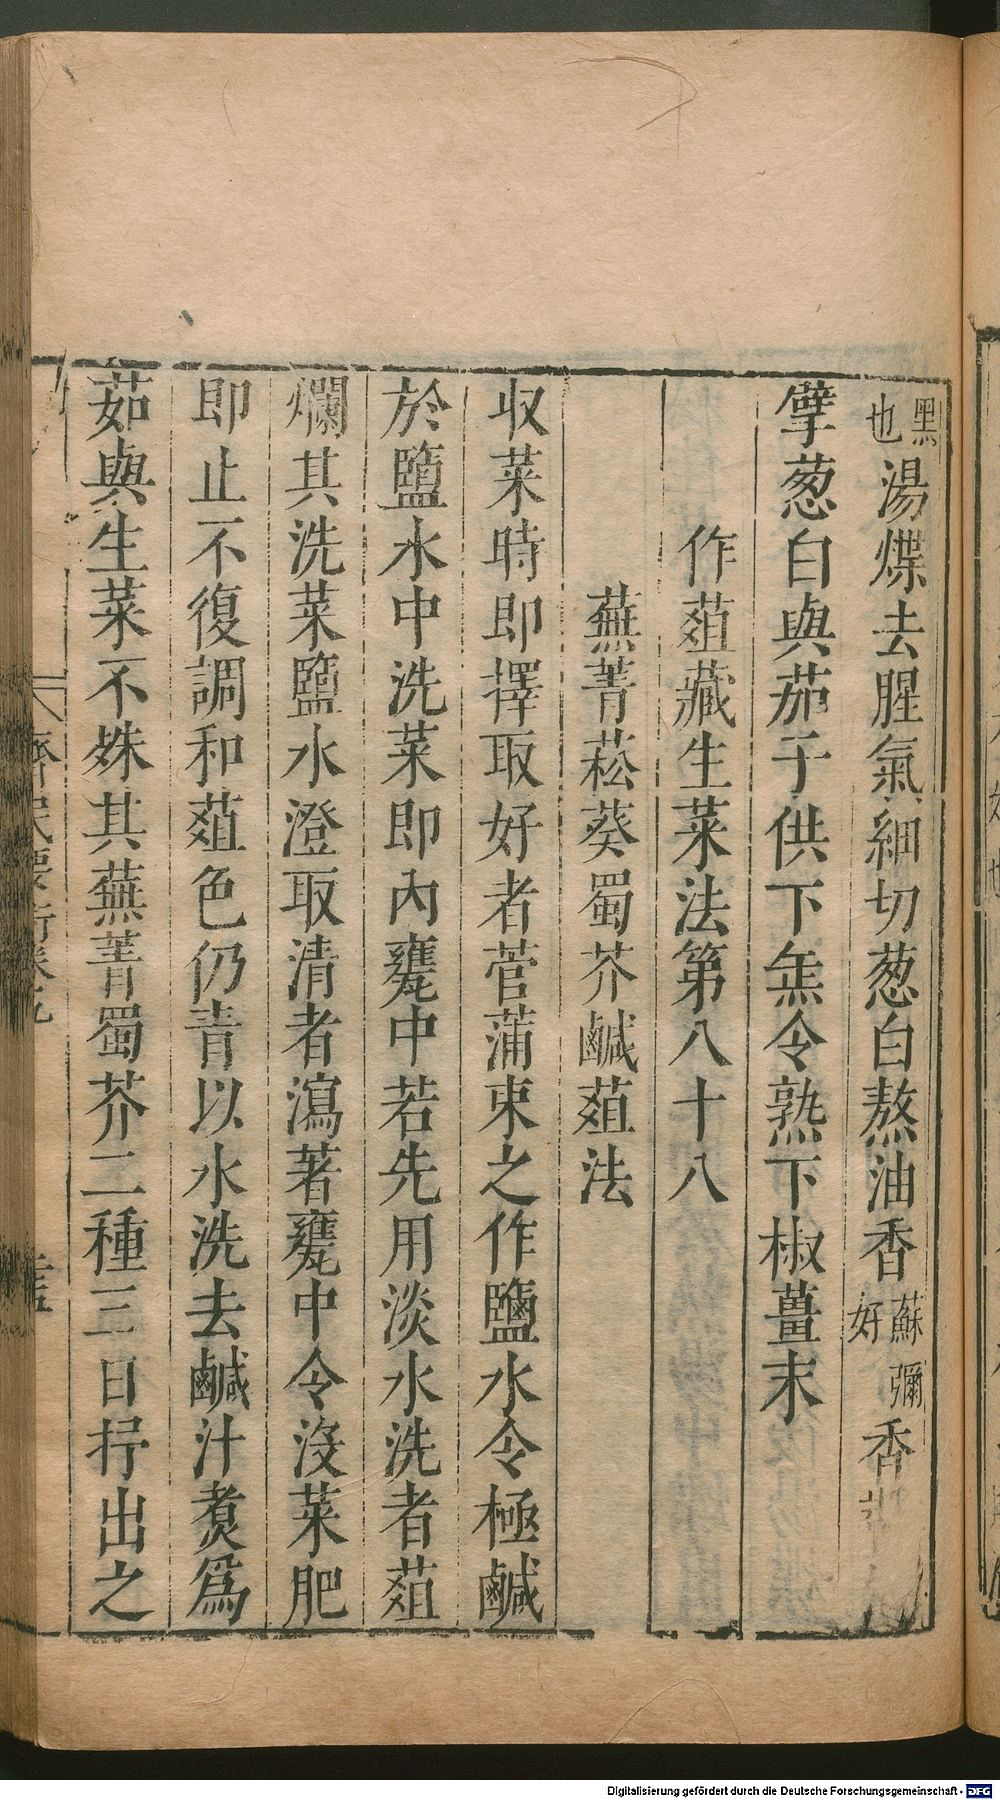 黑也湯煠去腥氣細切葱白熬油香蘇彌好香
擘葱白與茄子供下缹令熟下椒薑末
作葅藏生菜法第八十八
蕪菁菘葵蜀芥鹹葅法
収菜時即擇取好者菅蒲束之作鹽水令極鹹
於鹽水中洗菜即內甕中若先用淡水洗者葅
爛其洗菜鹽水澄取清者瀉著甕中令沒菜肥
即止不復調和葅色仍青以水洗去鹹汁煑爲
茹與生菜不殊其蕪菁蜀芥二種三日抒出之
齊民要術卷九
Digitalisierung gefördert durch die Deutsche Forschungsgemeinschaft - DFG